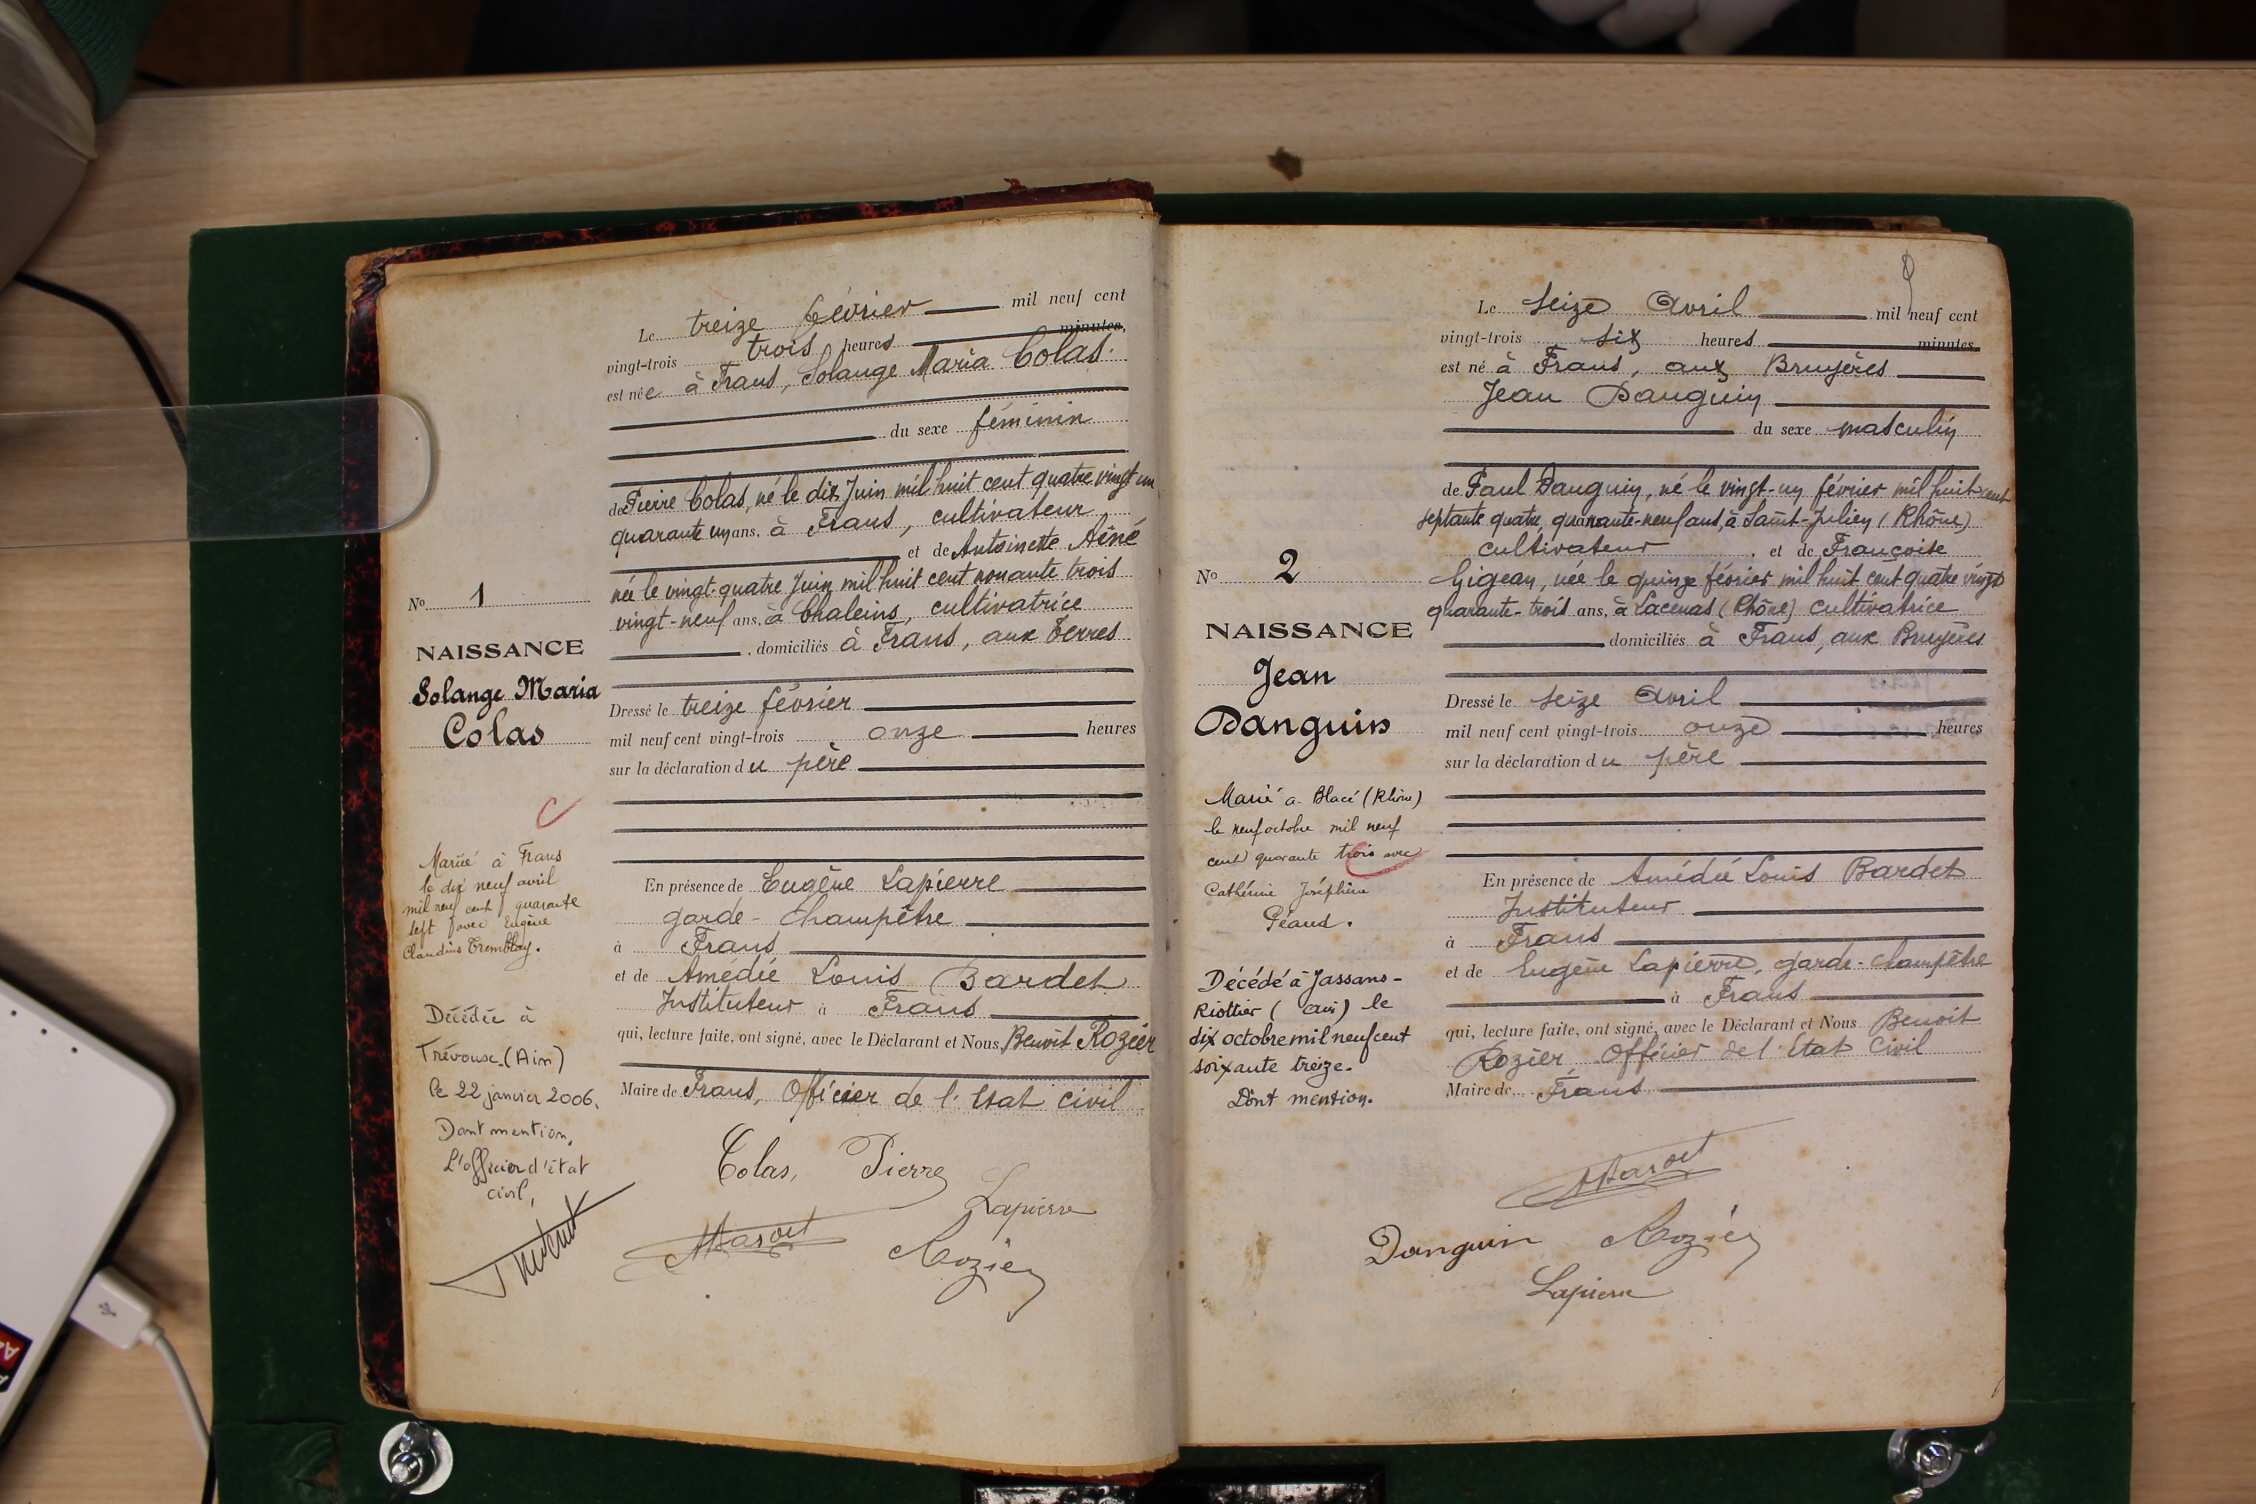 Le treize février mil neuf cent
vingt-trois trois heures minutes,
est née à Frans, Solange Maria Colas.
du sexe féminin
de Pierre Colas, né le dix Juin mil huit cent quatre vingt un
quarante un ans, à Frans, cultivateur
et de Antoinette Aîné
née le vingt-quatre Juin mil huit cent nonante trois
vingt-neuf ans, à Chaleins, cultivatrice
, domiciliés à Frans, aux Terres
Dressé le treize février
mil neuf cent vingt-trois onze heures
sur la déclaration du père
En présence de Eugène Lapierre
garde-champêtre
à Frans
et de Amédée Louis Bardet
Instituteur à Frans
qui, lecture faite, ont signé, avec le Déclarant et Nous, Benoît Rozier
Maire de Frans, Officier de l'Etat civil
Colas, Pierre
Lapierre
Rozier
No 1
NAISSANCE
Solange Maria
Colas
Marié à Frans
le dix neuf avril
mil neuf cent quarante
sept avec Eugène
Claudius Tremblay.
Décédée à
Trévoux (Ain)
le 22 janvier 2006.
Dont mention,
L'officier d'état
civil,
Le seize Avril mil neuf cent
vingt-trois six heures minutes,
est né à Frans, aux Bruyères
Jean Danguin
du sexe masculin
de Paul Danguin, né le vingt-un février mil huit cent
septante quatre, quarante-neuf ans, à Saint-Julien (Rhône)
cultivateur , et de Françoise
Gigean, née le quinze février mil huit cent quatre vingt
quarante-trois ans, à Lacenas (Rhône) cultivatrice
domiciliés à Frans, aux Bruyères
Dressé le seize Avril
mil neuf cent vingt-trois onze heures
sur la déclaration du père
En présence de Amédée Louis Bardet
Instituteur
à Frans
et de Eugène Lapierre, garde-champêtre
à Frans
qui, lecture faite, ont signé, avec le Déclarant et Nous Benoît
Rozier Officier de l'Etat Civil
Maire de Frans
Danguin Rozier
Lapierre
No 2
NAISSANCE
Jean
Danguin
Marié à Blacé (Rhône)
le neuf octobre mil neuf
cent quarante trois avec
Cathérine Joséphine
Géaud.
Décédé à Jassans-
Riottier (Ain) le
dix octobre mil neuf cent
soixante treize.
Dont mention.